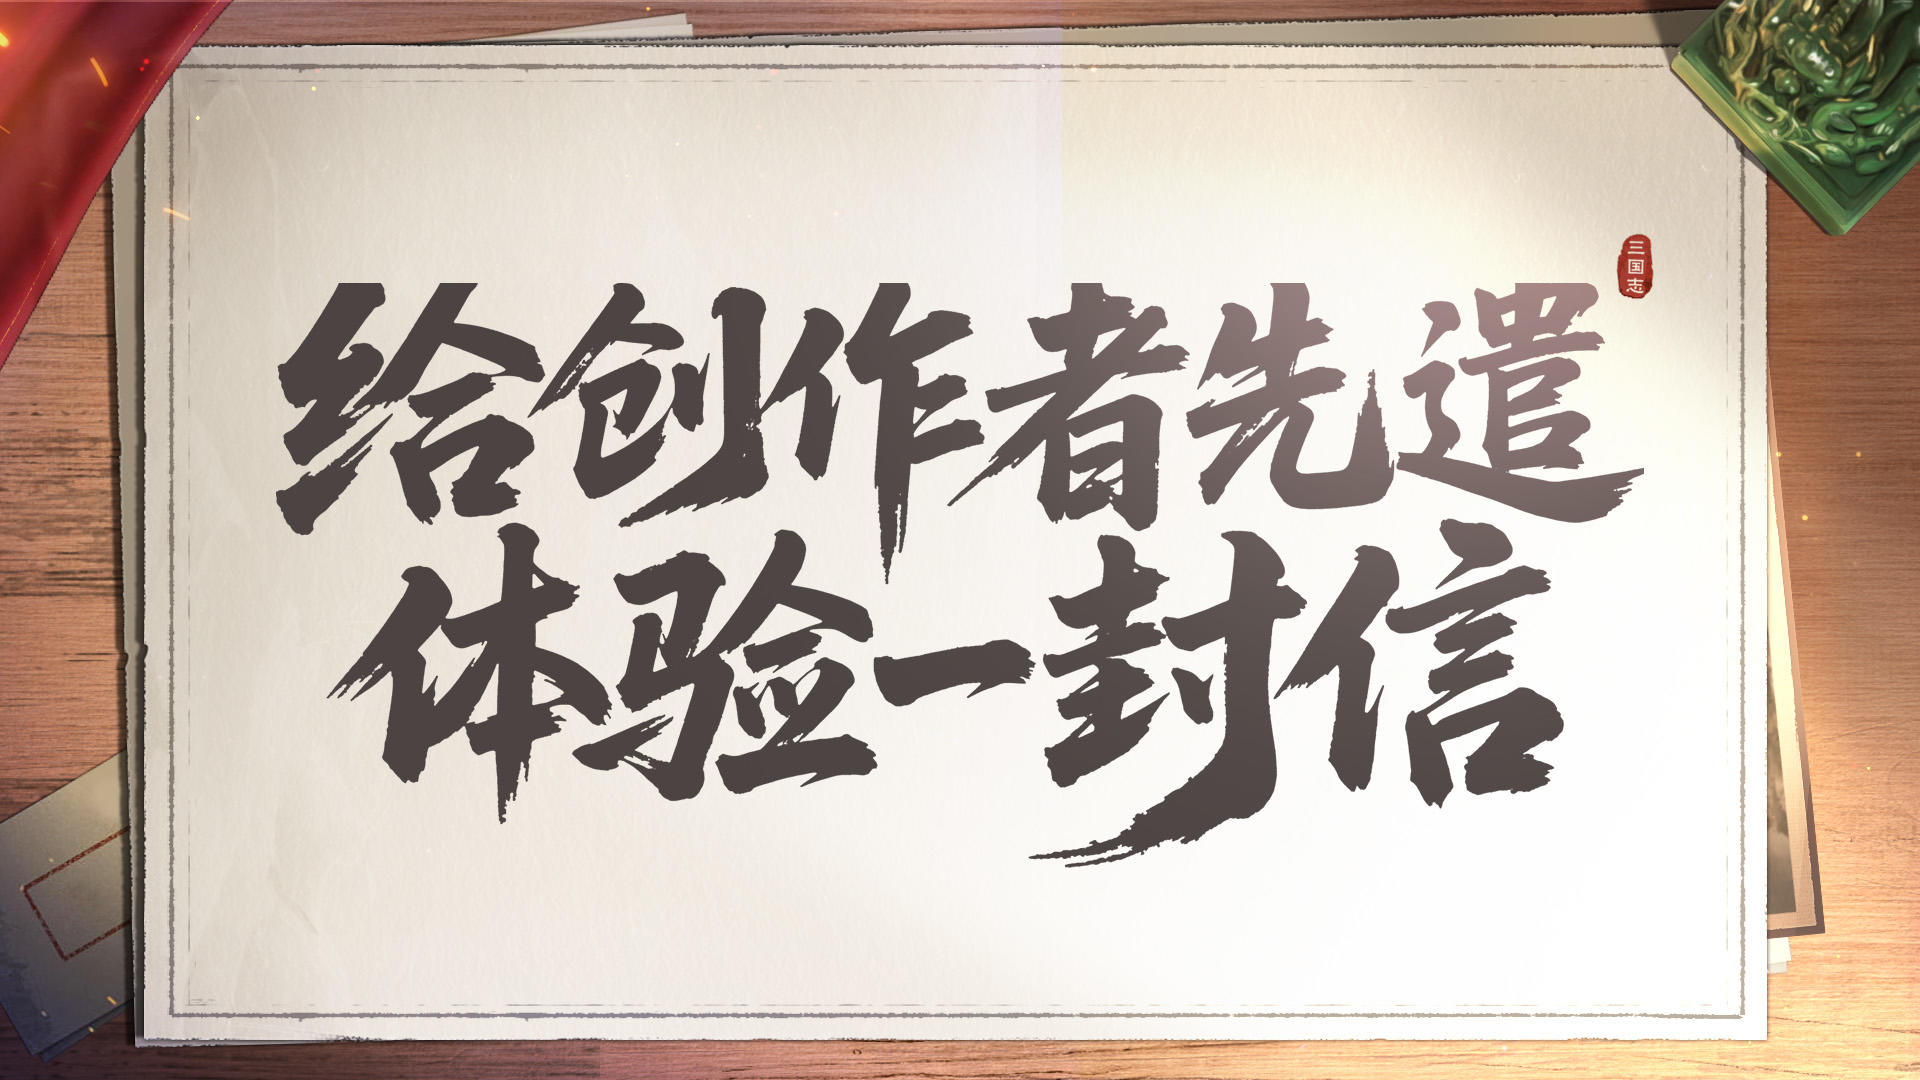 给创作者先遣
体验一封信
三国志